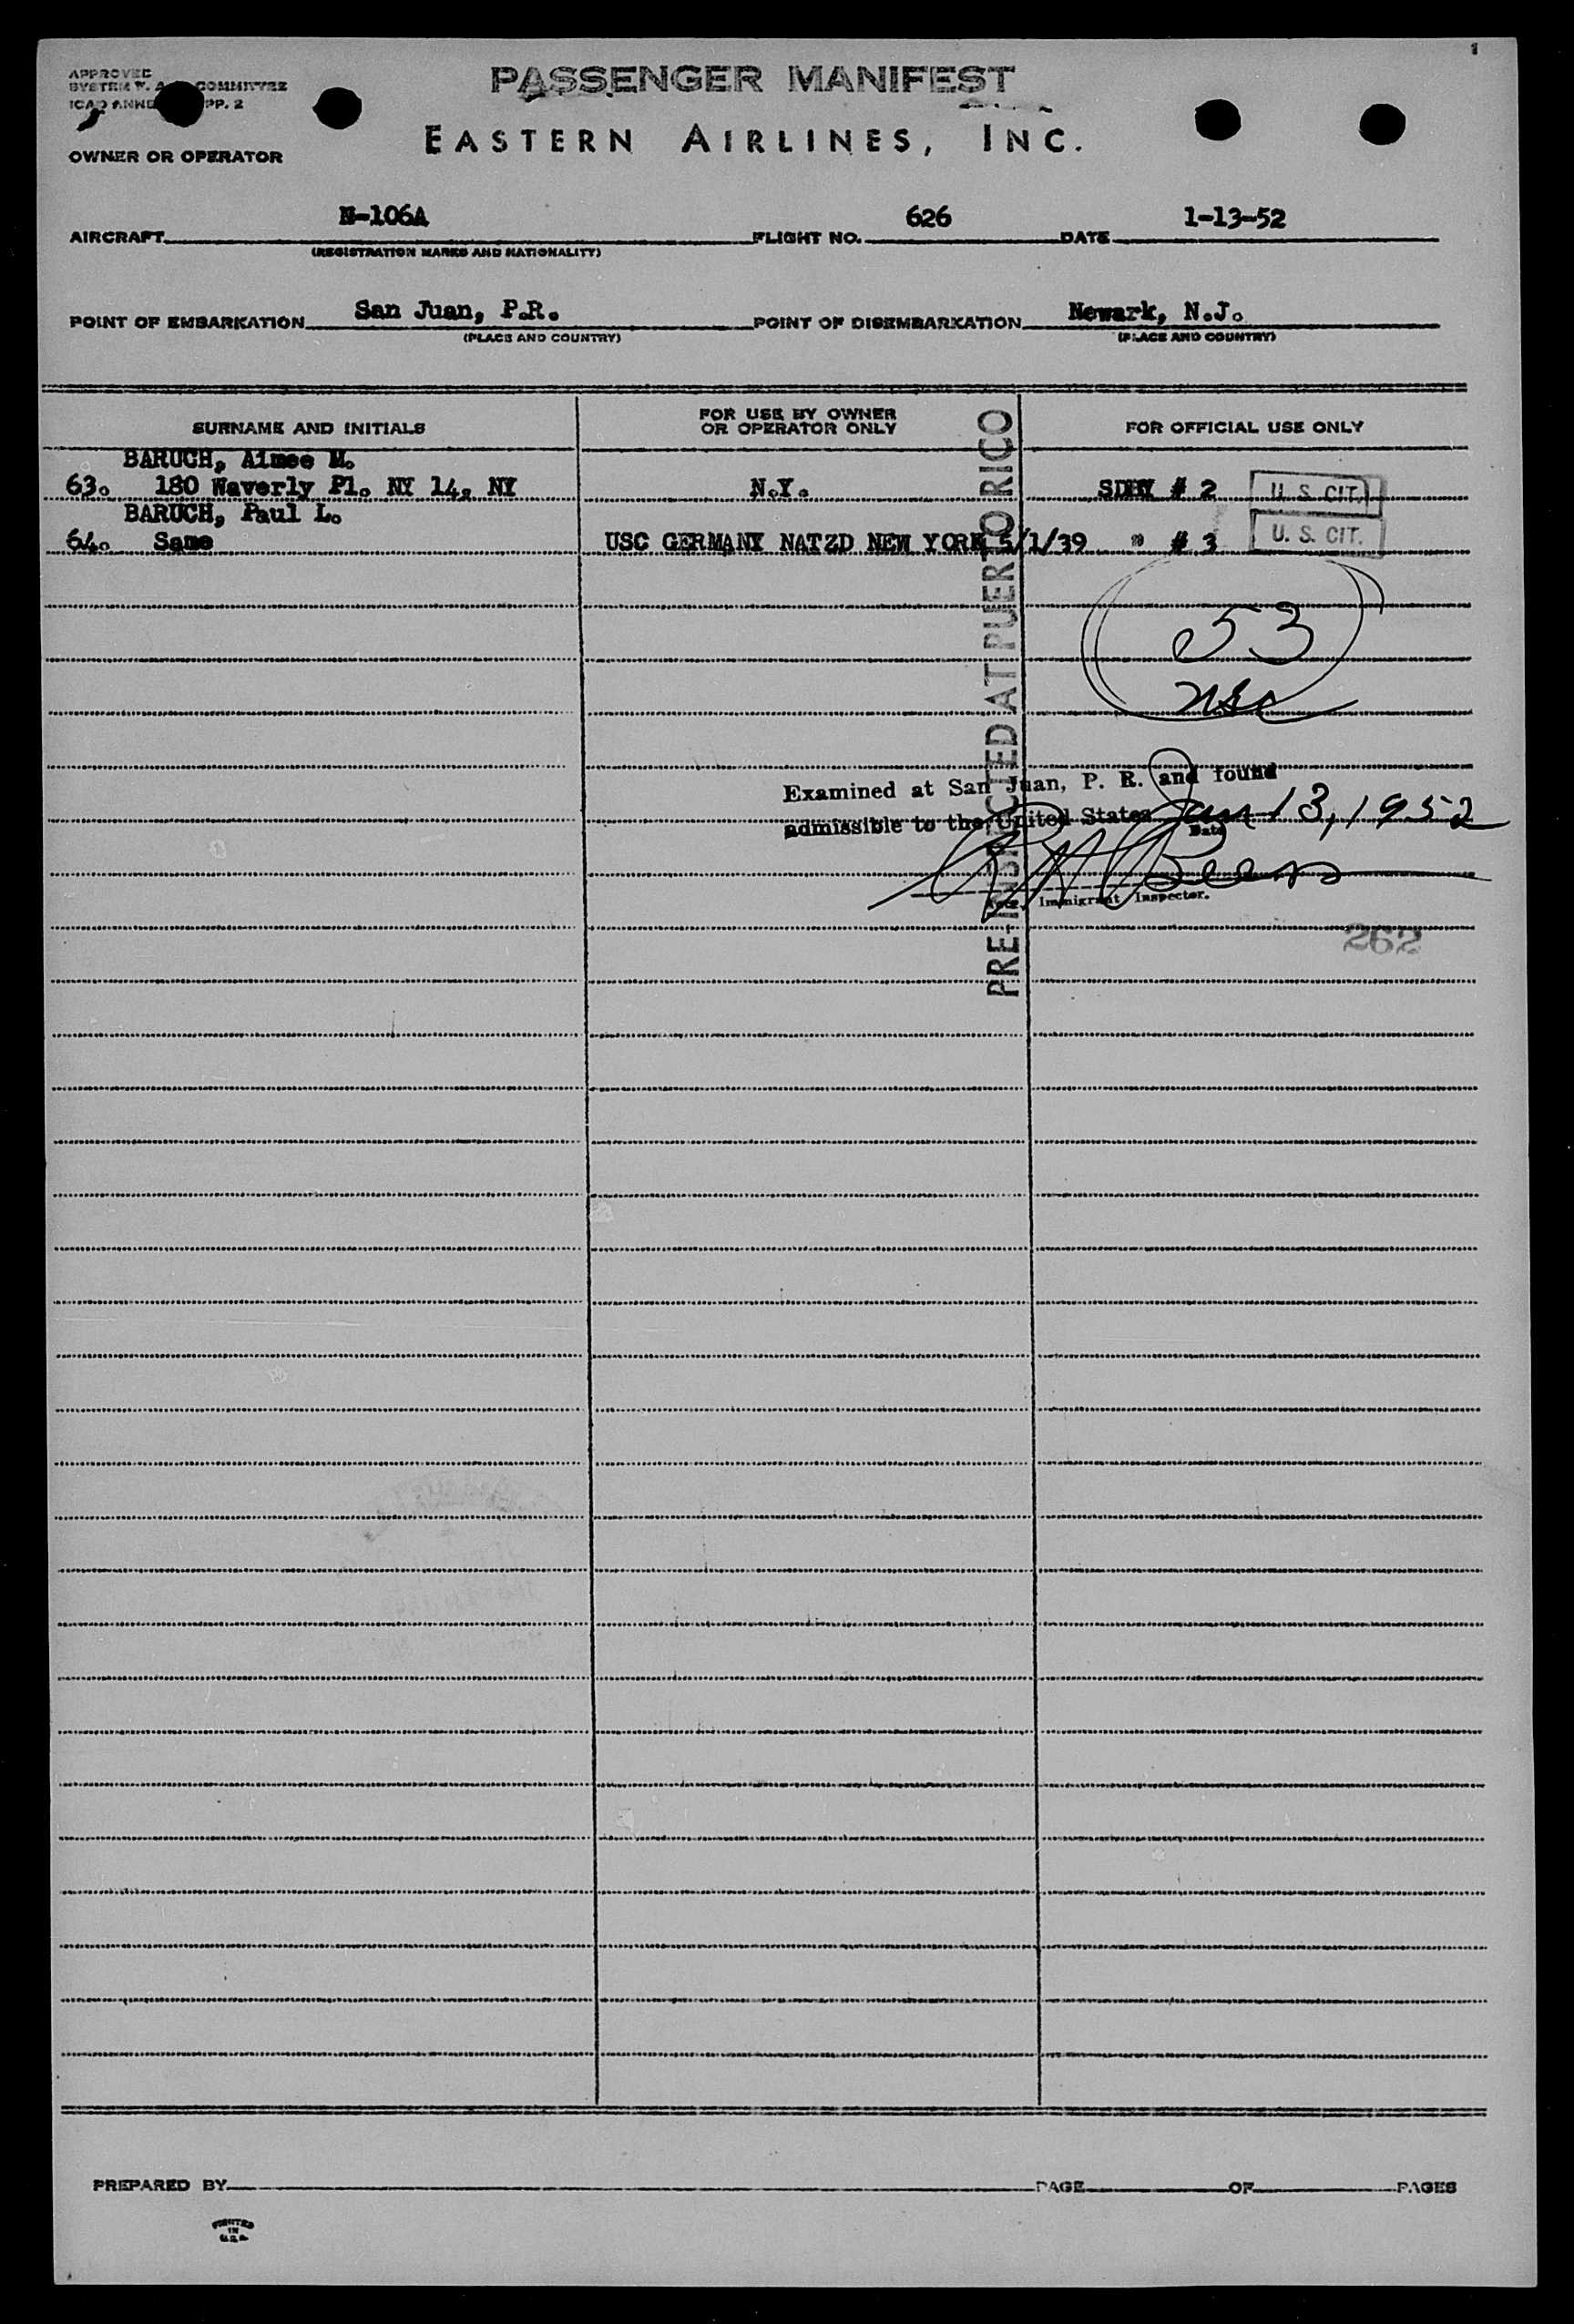 1
APPROVED
SYSTEM W. A. COMMITTEE
ICAO ANNE PP. 2
PASSENGER MANIFEST
EASTERN AIRLINES, INC.
OWNER OR OPERATOR
AIRCRAFT N-106A FLIGHT NO. 626 DATE 1-13-52
(REGISTRATION MARKS AND NATIONALITY)
POINT OF EMBARKATION San Juan, P.R. POINT OF DISEMBARKATION Newark, N.J.
(PLACE AND COUNTRY) (PLACE AND COUNTRY)
SURNAME AND INITIALS FOR USE BY OWNER OR OPERATOR ONLY FOR OFFICIAL USE ONLY
BARUCH, Aimee M.
63. 180 Waverly Pl. NY 14, NY N.Y. SDBY # 2 U. S. CIT.
BARUCH, Paul L.
64. Same USC GERMANY NATZD NEW YORK 5/1/39 " # 3 U. S. CIT.
PRE-INSPECTED AT PUERTO RICO
53
usc
Examined at San Juan, P. R. and found
admissible to the United States Jan 13, 1952
Date
Immigrant Inspector.
262
PREPARED BY PAGE OF PAGES
PRINTED
IN
U.S.A.